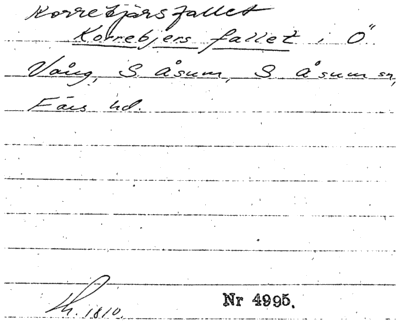 Korrebjärsfallet
Korrebjers fallet, i Ö
Vång, S Åsum, S Åsum sn,
Färs hd.
1810.
Nr 4995.